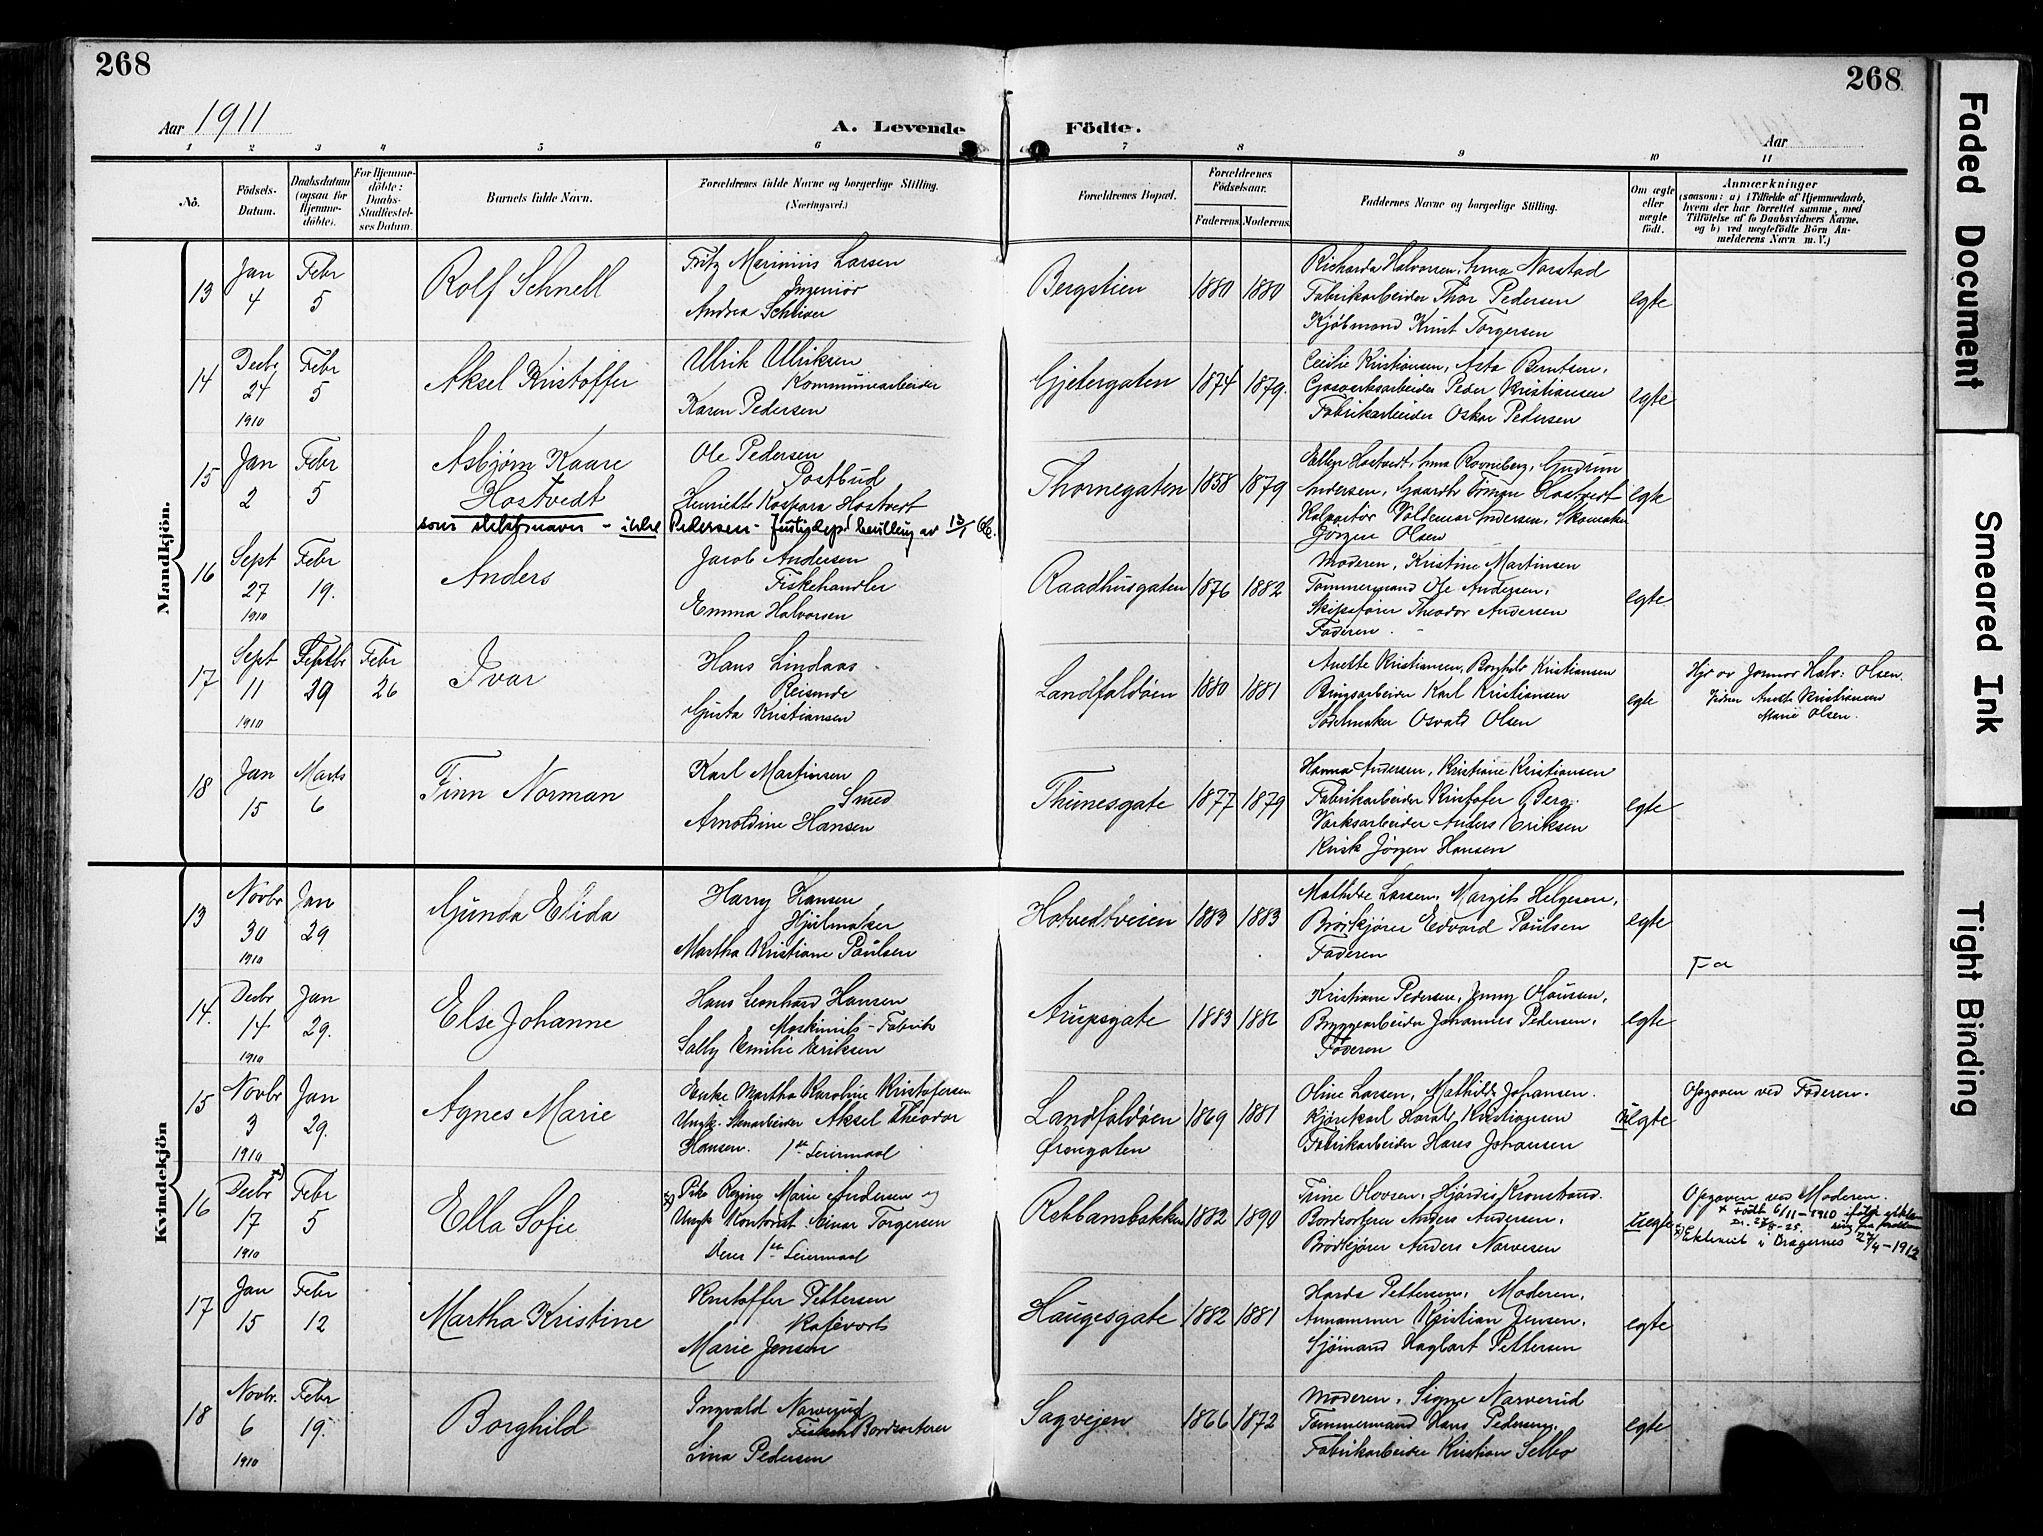 268
268
Aar 1911
A. Levende
Födte.
Aar
1 2 3 4 5 6 7 8 9 10 11
No.
Födsels-
Datum.
Daabsdatum
(ogsaa for
Hjemme-
döbte).
For Hjemme-
döbte:
Daabs-
Stadfæstel-
ses Datum.
Barnets fulde Navn.
Forældrenes fulde Navne og borgerlige Stilling.
(Næringsvei.)
Forældrenes Bopæl.
Forældrenes
Födselsaar.
Faderens. Moderens.
Faddernes Navne og borgerlige Stilling.
Om ægte
eller
uægte
födt.
Anmærkninger
(saasom: a) i Tilfælde af Hjemmedaab,
hvem der har forrettet samme, med
Tilföielse af to Daabsvidners Navne,
og b) ved uægtefödte Börn An-
melderens Navn m. V.)
Mandkjön.
13
Jan
4
Febr
5
Rolf Schnell
Fritz Marinius Larsen
Ingeniør
Andrea
Bergstien
1880 1880
Richarda Halvorsen, Anna Norstad
Fabrikarbeider Thor Pedersen
Kjøbmand Knut Torgersen
egte
14
Decbr
24
1910
Febr
5
Aksel Kristoffer
Ulrik Ulriksen
Kommunearbeider
Karen Pedersen
Gjetergaten
1874 1879.
Cecilie Kristiansen, Asta Berntsen,
Gasverksarbeider Peder Kristiansen
Fabrikarbeider Oskar Pedersen
egte
15
Jan
2
Febr
5
Asbjørn Kaare
Hostvedt
som slektsnavn - ikke Pedersen - Justisdep. bevilling av
Ole Pedersen
Postbud
Henriette Kaspara Hostvedt
Thornegaten
1858 1879
Hostvedt, Anna Gudrun
Andersen, Hostvedt
Valdemar Andersen, Skomaker
Jørgen Olsen
egte
16
Sept
27
1910
Febr
19.
Anders
Jacob Andersen
Fiskehandler
Emma Halvorsen
Raadhusgaten
1876 1882
Moderen, Kristine Martinsen
Tømmermand Ole Andersen,
Skipsfører Theodor Andersen
Faderen.
egte
17
Sept
11
1910
Septbr
29
Febr
26
Ivar
Hans Lindaas
Reisende
Gusta Kristiansen
Landfaldøen
1880 1881
Anette Kristiansen, Kristiansen
Karl Kristiansen
Sadelmaker Osvald Olsen
egte
Hjd. av Jormor Halv: Olsen.
Vidner Anette Kristiansen
Marie Olsen.
18
Jan
15
Marts
6
Finn Norman
Karl Martinsen
Smed
Arnoldine Hansen
Thimesgate
1877 1879
Hanna Andersen, Kristiane Kristiansen
Fabrikarbeider Kristofer Berg.
Værksarbeider Anders Eriksen
Kusk Jörgen Hansen
egte
Kvindekjön
13
Novbr
30
1910
Jan
29
Gunda Elida
Harry Hansen
Hjulmaker
Martha Kristiane Paulsen
Hotvedtveien
1883 1883
Mathilde Larsen, Margit Helgesen,
Brødkjører Edvard Paulsen
Faderen
egte
Fa
14.
Decbr
14
1910
Jan
29.
Else Johanne
Hans Leonhard Hansen
Maskinist - Fabrik
Sally Emilie Eriksen
Arupsgate
1883 1886
Kristiane Pedersen, Jenny Olaussen,
Bryggearbeider Johannes Pedersen,
Faderen
egte
15
Novbr
3
1910
Jan
29.
Agnes Marie
Enke Martha Karoline Kristofersen
Ungk. Stenarbeider Aksel Theodor
Hansen. 1ste Leiermaal
Landfaldøen
Ørengaten
1869 1881
Oline Larsen, Mathilde Johansen.
Kjørekarl Harald Kristiansen
Fabrikarbeider Hans Johansen
uegte
Opgaven ved Faderen.
16
Decbr +)
17
1910
Febr
5
Ella Sofie
x) Pike Regine Marie Andersen og
Ungk Kontorist Einar Torgersen
Deres 1ste Leiermaal
Rebbansbakken
1882 1890
Trine Olavsen, Hjördis Kronstrand.
Bordsorterer Anders Andersen,
Brødkjører Anders Narvesen
uegte
Opgaven ved Moderen.
+ Født 6/11-1910 ifølge erklæ-
ring fra
x) Ektevied i Bragernes 27/4-1912
17
Jan
15
Febr
12
Martha Kristine
Kristoffer Pettersen
Kafévert
Marie Jensen
Haugesgate
1882 1881
Pettersen, Moderen,
Kristian Jensen,
Sjømand Hagbart Pettersen
egte
18
Novbr.
6
1910
Febr
19.
Borghild
Ingvald Narverud
Bordsorterer
Lina Pedersen
Sagvejen
1866 1872
Moderen, Signe Narverud
Tømmermand Hans Pedersen,
Fabrikarbeider Kristian Selbo
egte
Faded Document
Smeared Ink
Tight Binding